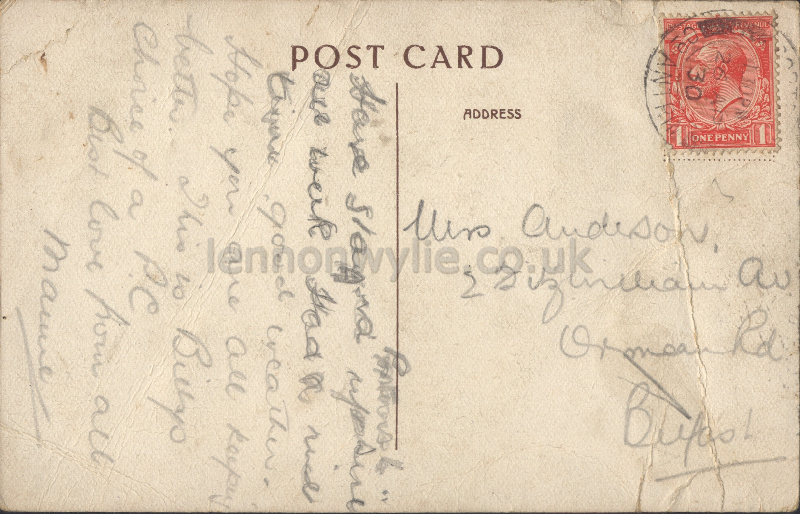 POST CARD
ADDRESS
ONE PENNY
1 1
30
Miss Anderson,
2 Fitzwilliam Av
Ormeau Rd
Belfast
Have stayed up here
all week Had a nice
time, good weather.
Hope you are all keeping
better. This is Billys
Choice of a P.C
Best love from all
Mamie
lennonwylie.co.uk